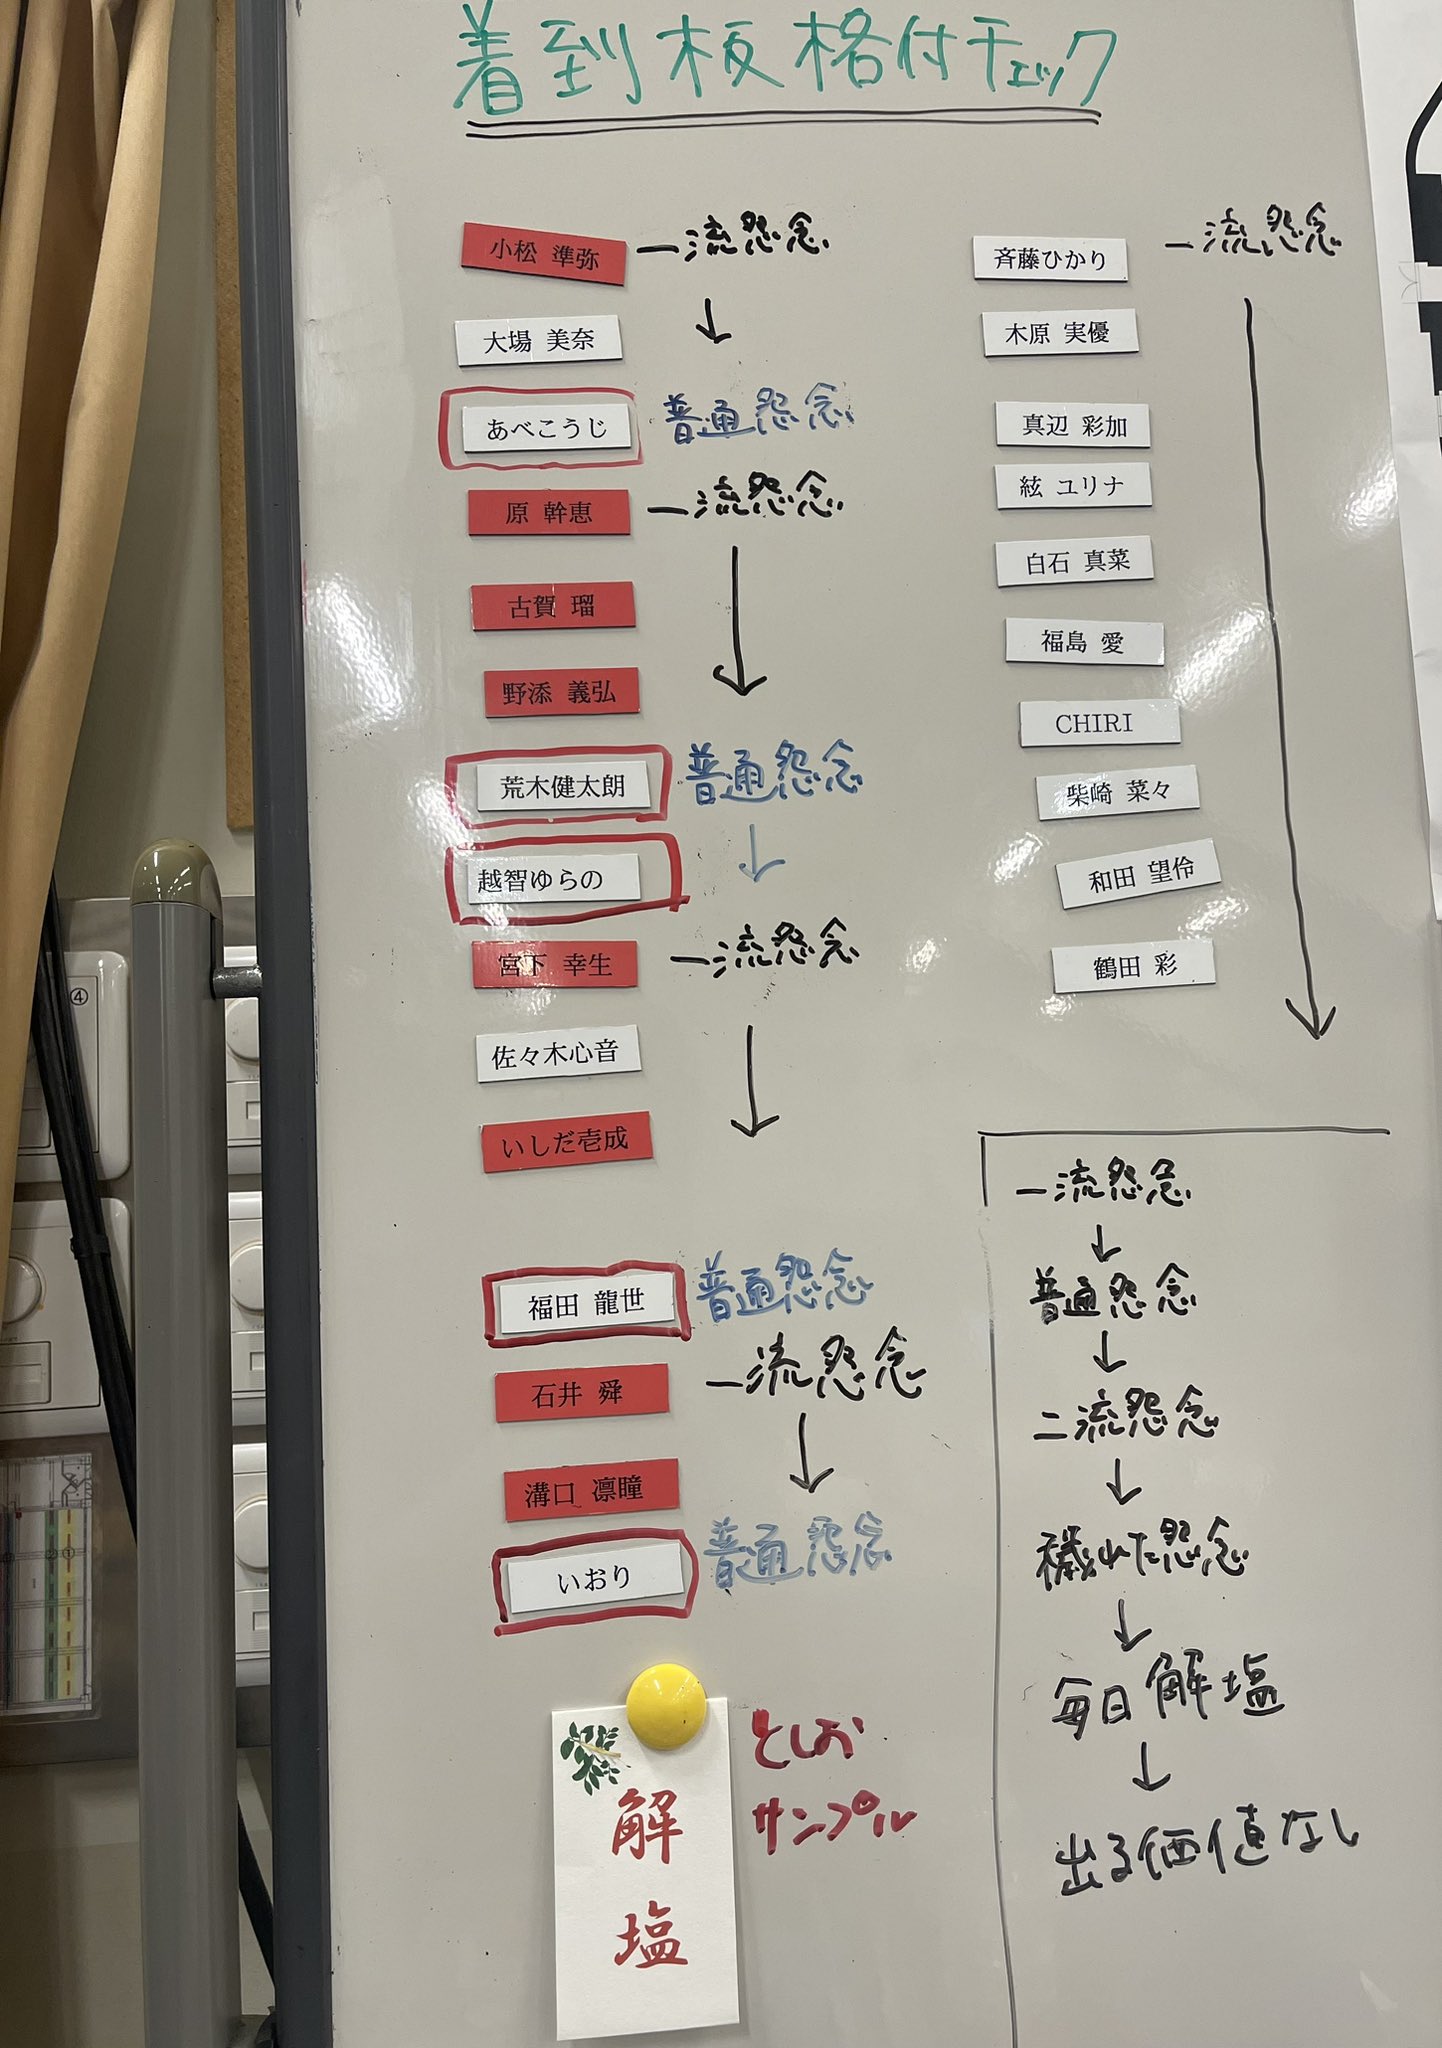 着到板格付チェック
小松 準弥 一流怨念
↓
大場 美奈
あべこうじ 普通怨念
原 幹恵 一流怨念
↓
古賀 瑠
野添 義弘
荒木健太朗 普通怨念
↓
越智ゆらの
宮下 幸生 一流怨念
佐々木心音
↓
いしだ壱成
福田 龍世 普通怨念
石井 舜 一流怨念
↓
溝口 凛瞳
いおり 普通怨念
解塩
としお
サンプル
斉藤ひかり 一流怨念
↓
木原 実優
真辺 彩加
絃 ユリナ
白石 真菜
福島 愛
CHIRI
柴崎 菜々
和田 望伶
鶴田 彩
一流怨念
↓
普通怨念
↓
二流怨念
↓
穢れた怨念
↓
毎日解塩
↓
出る価値なし
④